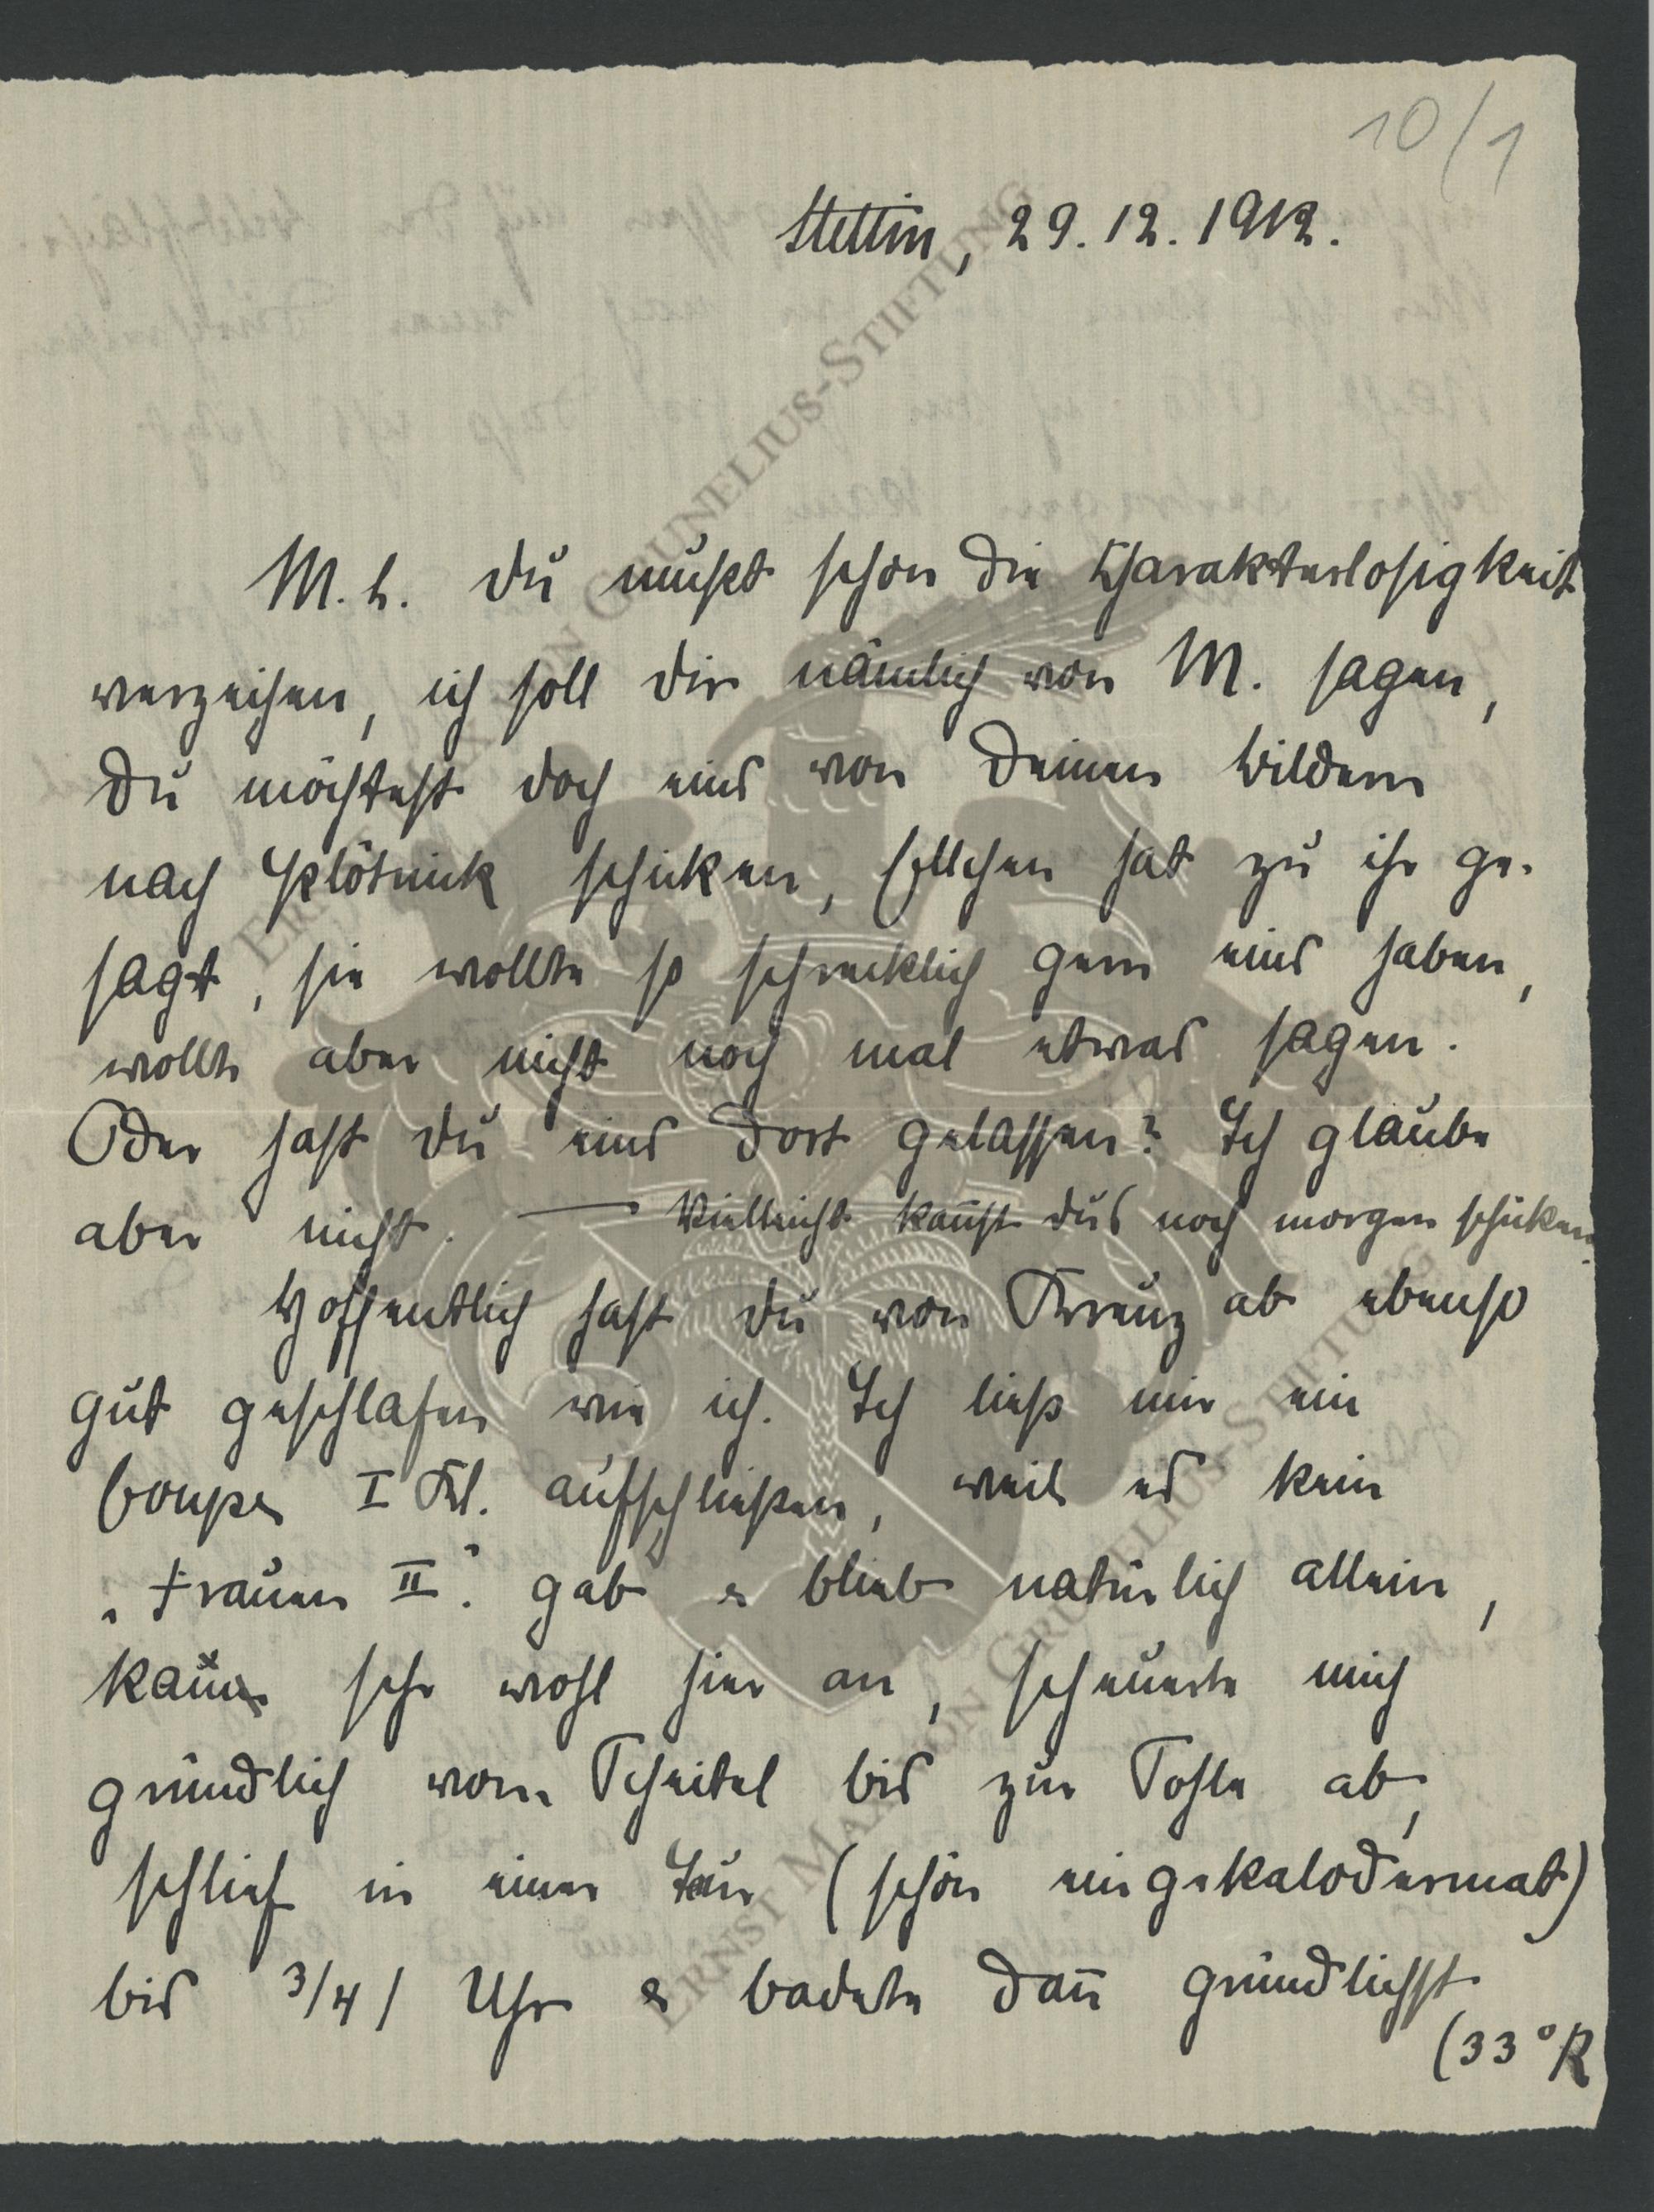 10/1
Stettin, 29.12.1912.
M. L. Du mußt schon die Charakterlosigkeit
verzeihen, ich soll Dir nämlich von M. sagen,
Du möchtest doch eins von Deinen Bildern
nach schicken, Ellchen hat zu ihr ge-
sagt, sie wollte so schrecklich gern eins haben,
wollte aber nicht noch mal etwas sagen.
Oder hast Du eins dort gelassen? Ich glaube
aber nicht. — Vielleicht kannst Du's noch morgen schicken.
Hoffentlich hast Du von Kreuz ab ebenso
gut geschlafen wie ich. Ich ließ mir ein
Coupee I Kl. aufschließen, weil es kein
„Frauen II“ gab & blieb natürlich allein,
kam sehr wohl hier an, scheuerte mich
gründlich vom Scheitel bis zur Sohle ab,
schlief in einer Tour (schön eingekalodermat)
bis 3/4 1 Uhr & badete dann gründlichst
(33°R
ERNST MAX VON GRUNELIUS-STIFTUNG
ERNST MAX VON GRUNELIUS-STIFTUNG